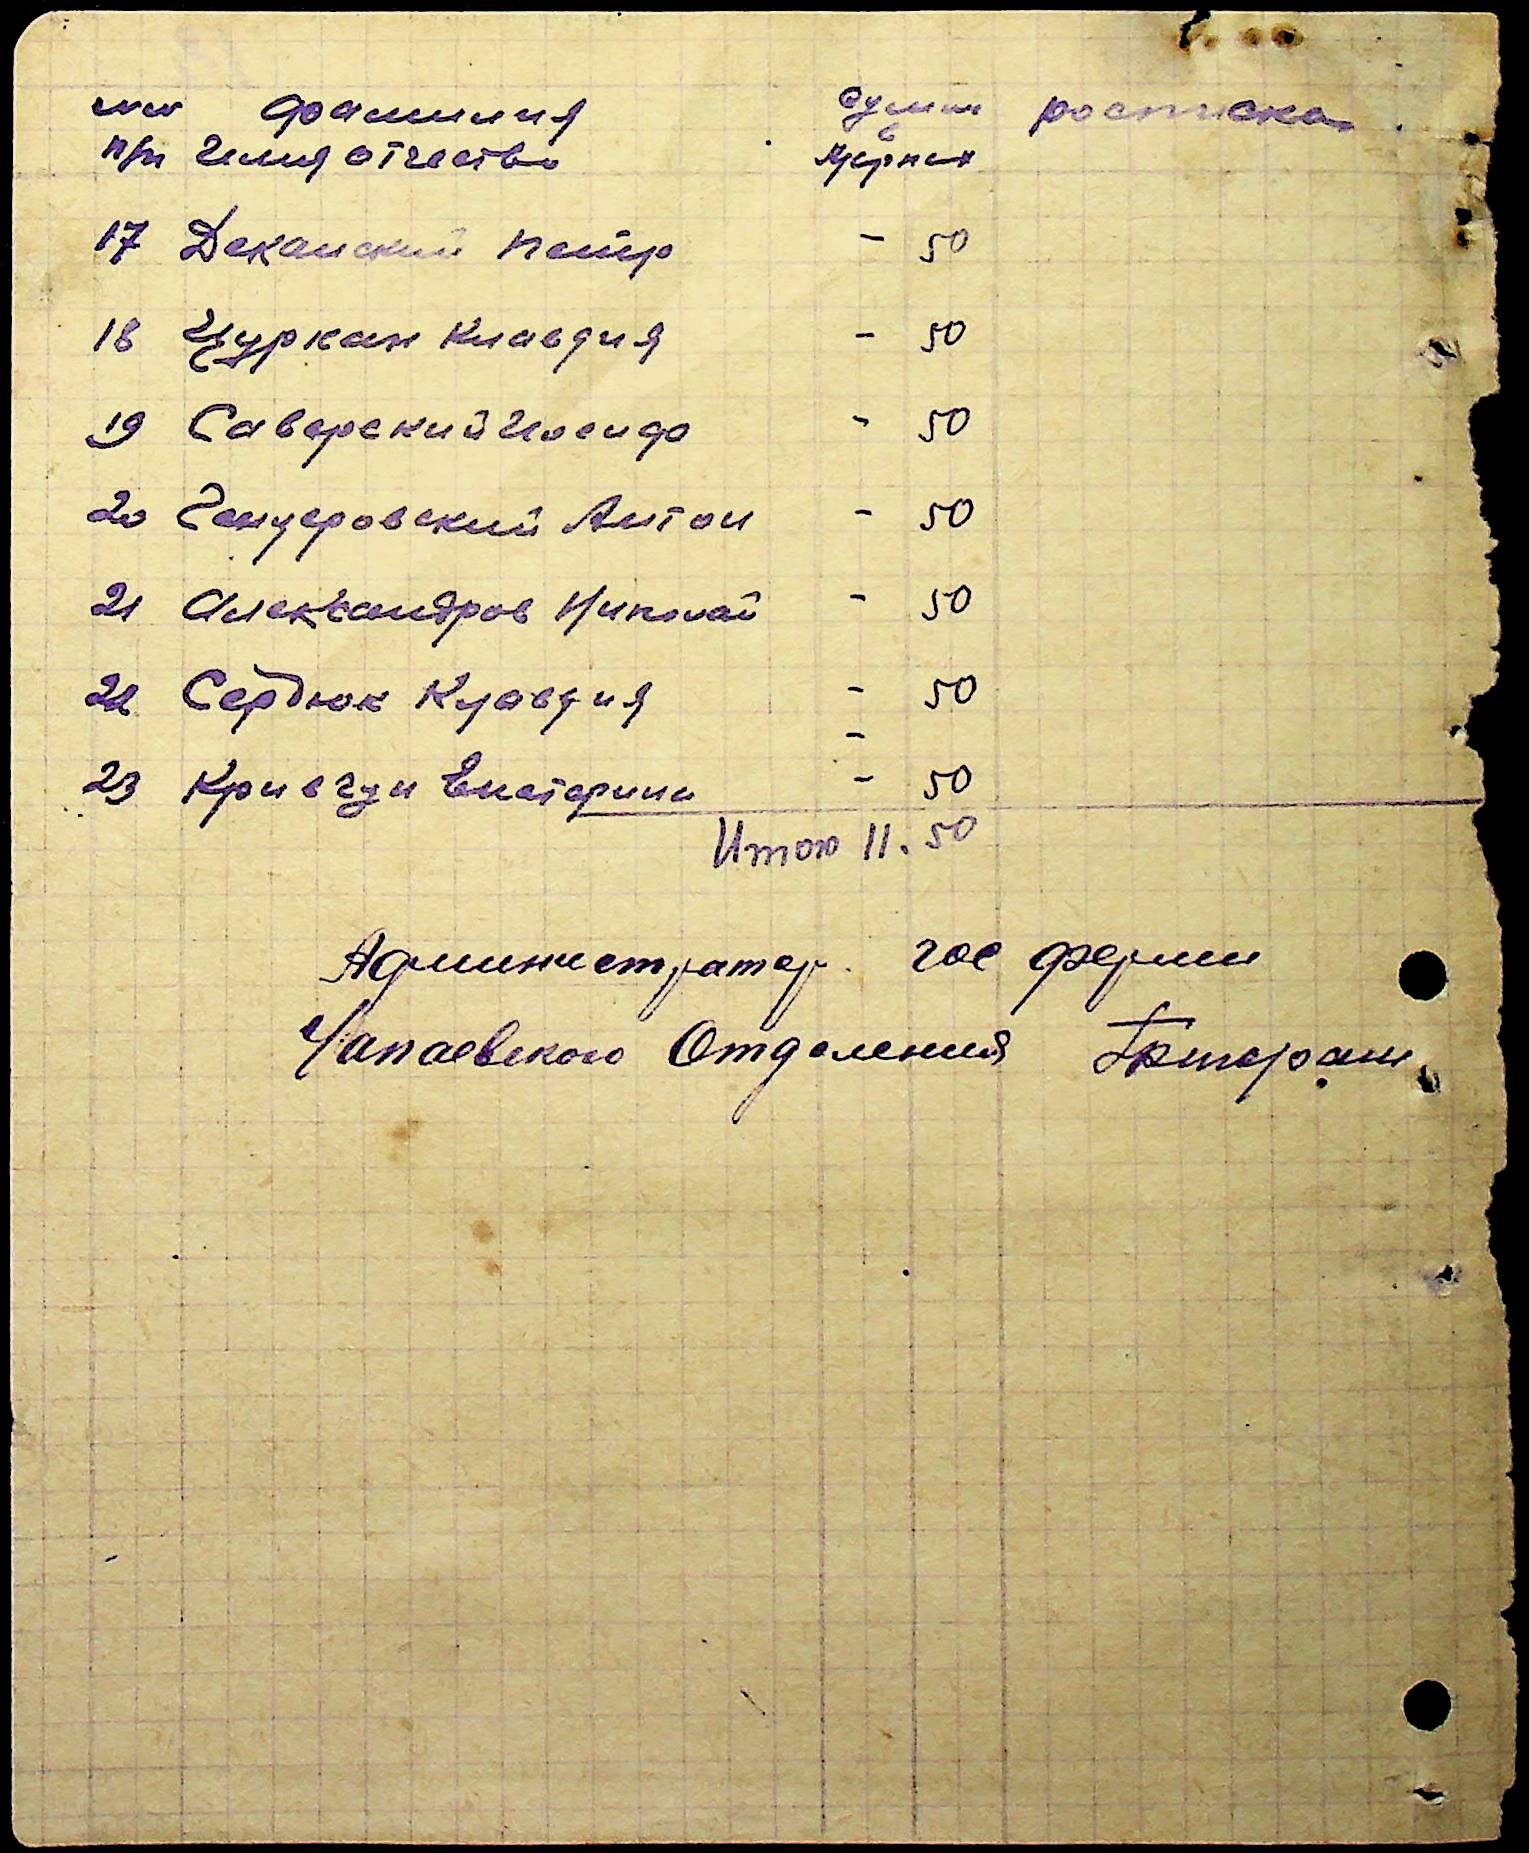 №№ фамилия сумма росписка
п/п Имия отчество в
17 Деканский Петр - 50
18 Цуркан Клавдия - 50
19 Саверский Иосиф - 50
20 Антон - 50
21 Александров Николай - 50
22 Сердюк Клавдия - 50
-
23 Кривчун Екатерина - 50
Итого 11.50
Администратор гос фермы
Чапаевского Отделения